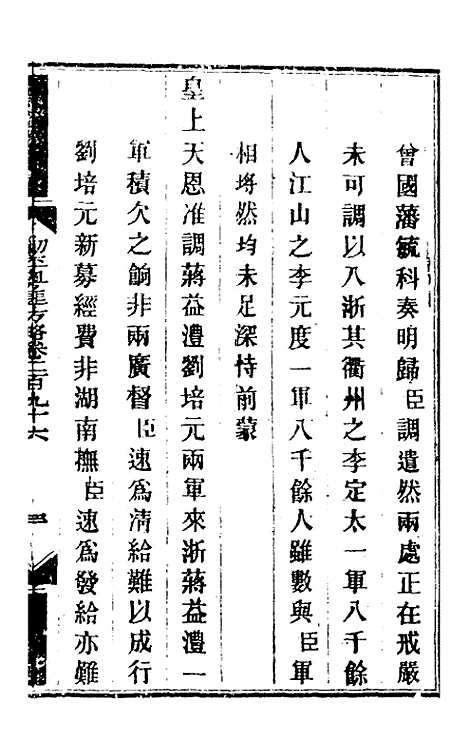 曾國藩毓科奏明歸臣調遣然兩處正在戒嚴
未可調以入浙其衢州之李定太一軍八千餘
人江山之李元度一軍八千餘人雖數與臣軍
相埒然均未足深恃前蒙
皇上天恩准調蔣益澧劉培元兩軍來浙蔣益澧一
軍積欠之餉非兩廣督臣速爲清給難以成行
劉培元新募經費非湖南撫臣速爲發給亦難
方略卷二百九十六